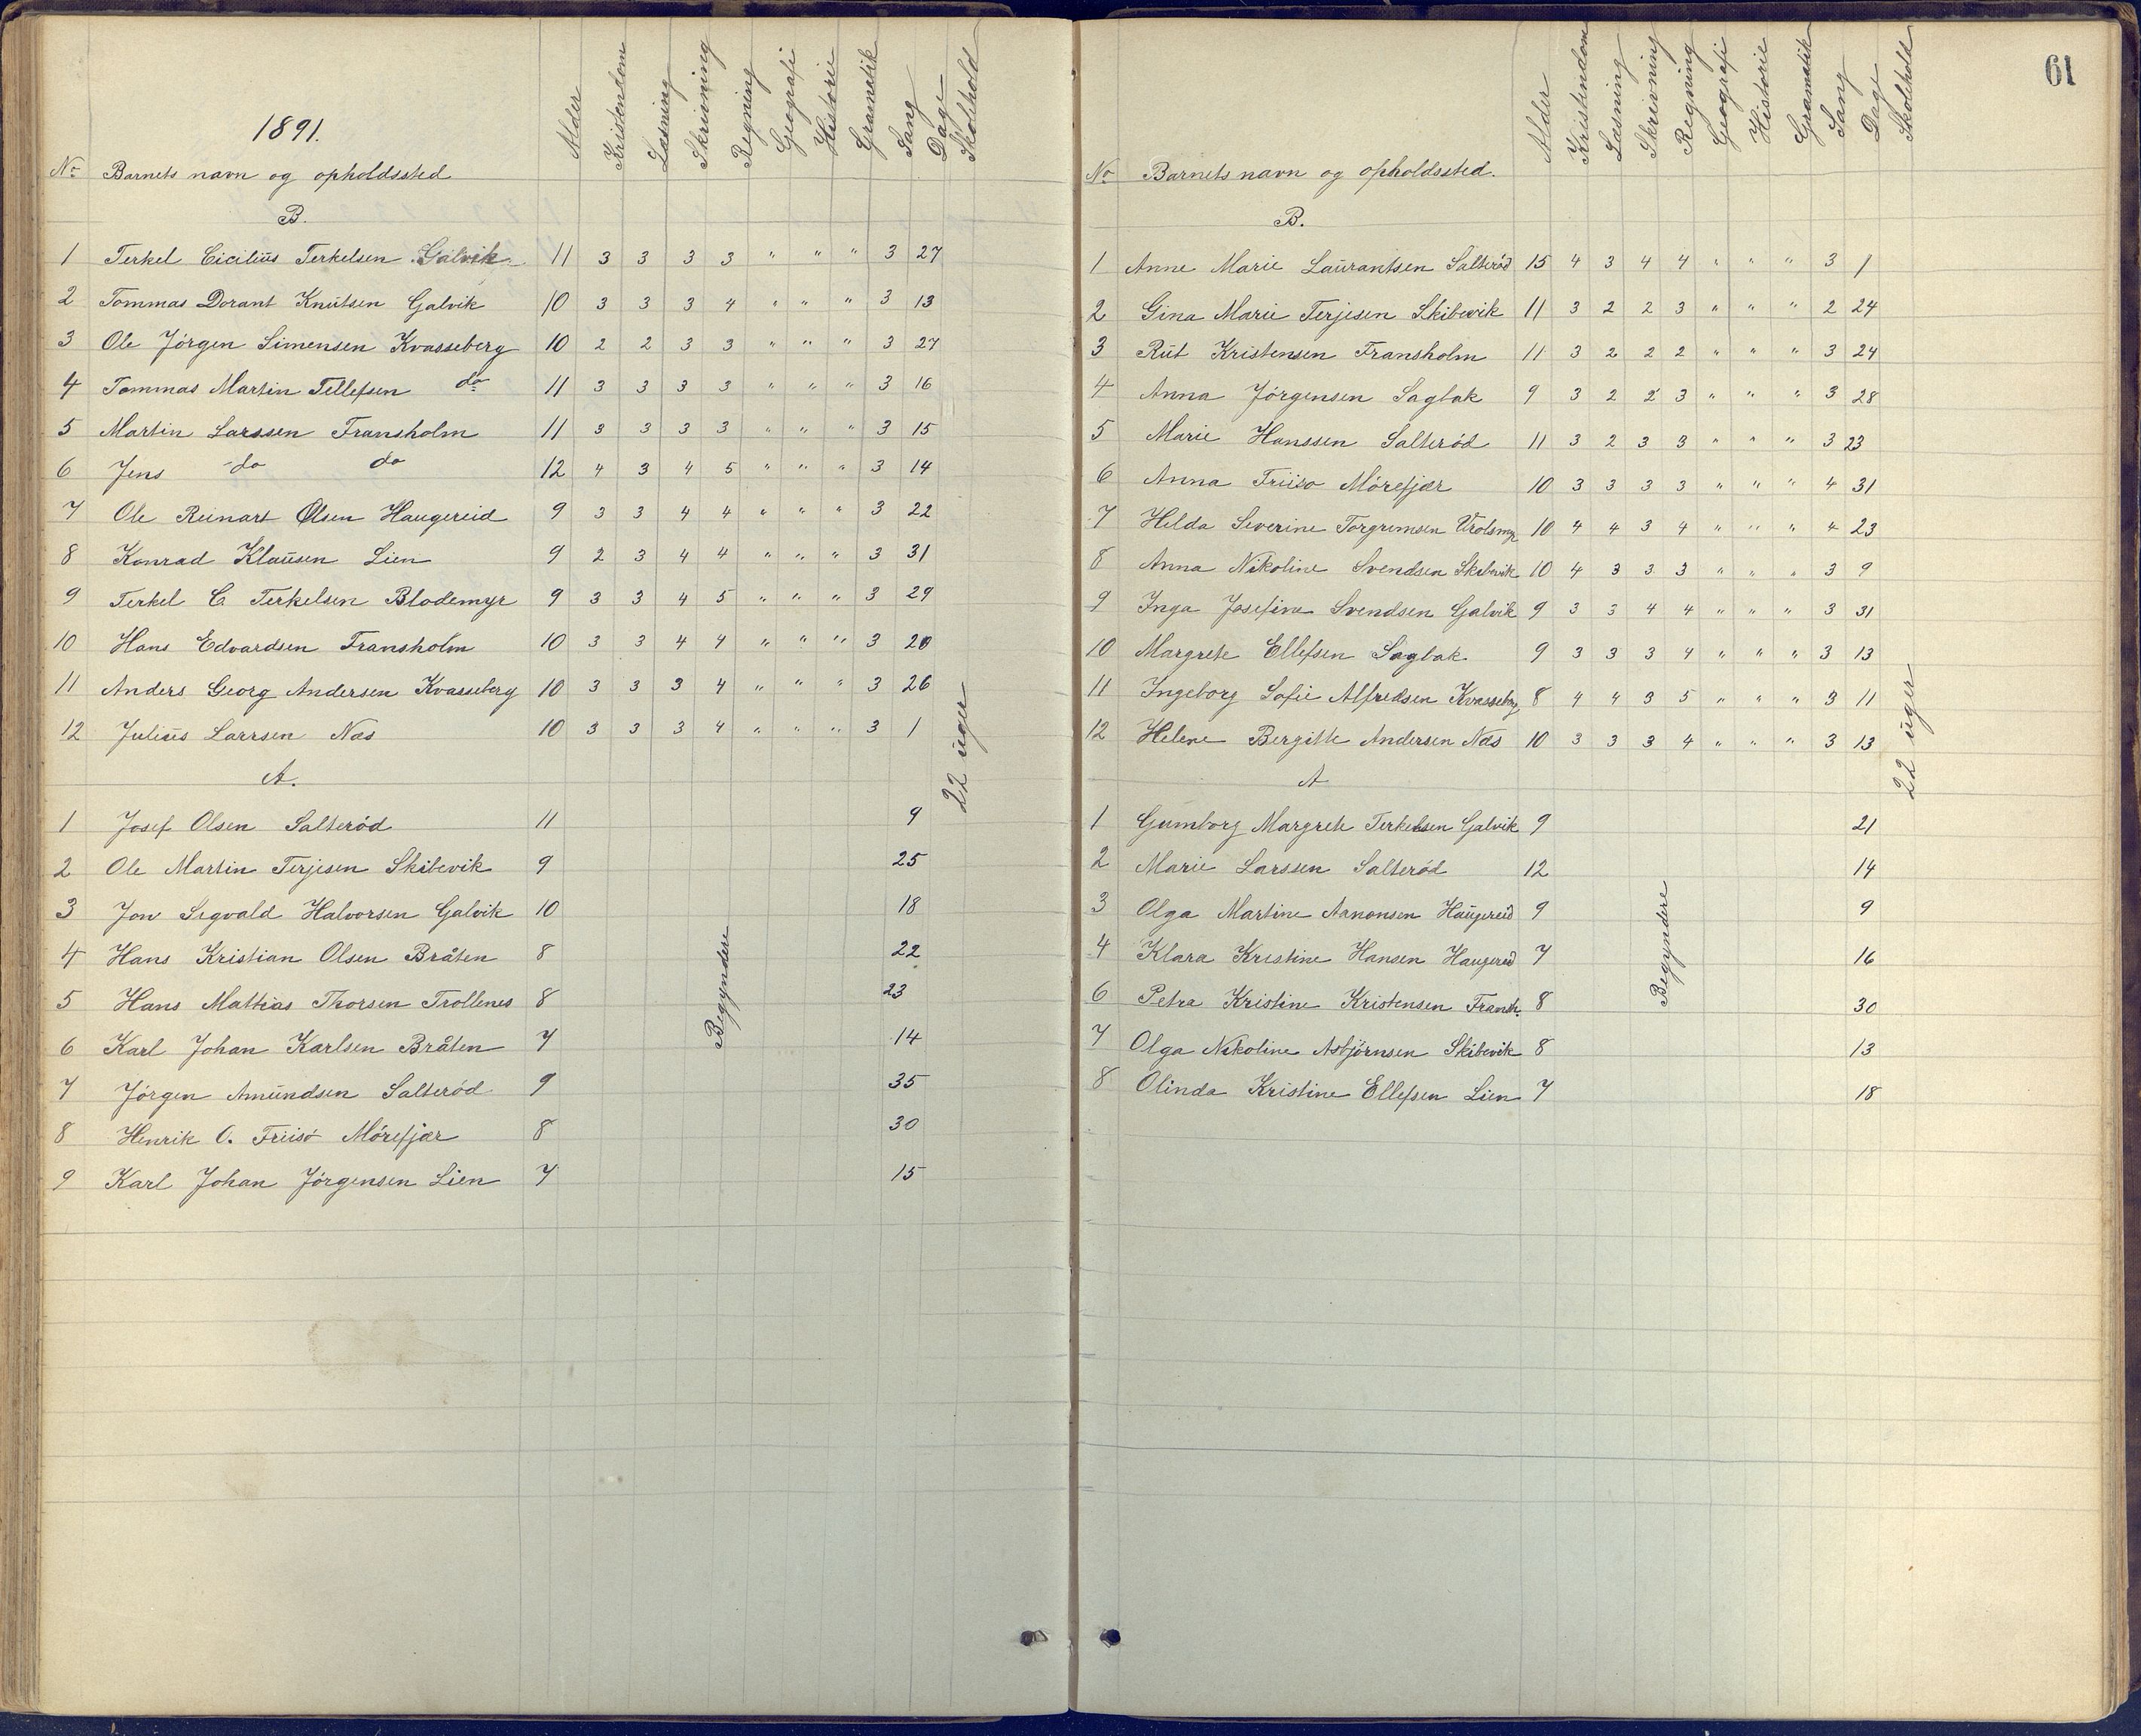 1891.
Nr Barnets navn og opholdssted Alder Kristendom Læsning Skrivning Regning Geografi Historie Gramatik Sang Dage Skolehold
B.
1 Terkel Cicilius Terkelsen Galvik 11 3 3 3 3 " " " 3 27
2 Tommas Dorant Knutsen Galvik 10 3 3 3 4 " " " 3 13
3 Ole Jörgen Simensen Kvasseberg 10 2 2 3 3 " " " 3 27
4 Tommas Martin Tellefsen do 11 3 3 3 3 " " " 3 16
5 Martin Larssen Fransholm 11 3 3 3 3 " " " 3 15
6 Jens do do 12 4 3 4 5 " " " 3 14
7 Ole Reinart Olsen Haugereid 9 3 3 4 4 " " " 3 22
8 Konrad Klausen Lien 9 2 3 4 4 " " " 3 31
9 Terkel C Terkelsen Blodemyr 9 3 3 4 5 " " " 3 29
10 Hans Edvardsen Fransholm 10 3 3 4 4 " " " 3 20
11 Anders Georg Andersen Kvasseberg 10 3 3 3 4 " " " 3 26
12 Julius Larrsen Næs 10 3 3 3 4 " " " 3 1
22 uger
A.
1 Josef Olsen Salteröd 11 9
2 Ole Martin Terjesen Skibevik 9 25
3 Jon Sigvald Halvorsen Galvik 10 18
4 Hans Kristian Olsen Bråten 8 22
5 Hans Mathias Thorsen Trollenes 8 23
6 Karl Johan Karlsen Bråten 7 14
7 Jörgen Amundsen Salteröd 9 35
8 Henrik O. Friisö Mörefjær 8 30
9 Karl Johan Jörgensen Lien 7 15
Begyndere
61
Nr Barnets navn og opholdssted. Alder Kristendom Læsning Skrivning Regning Geografi Historie Gramatik Sang Dage Skolehold
B.
1 Anne Marie Laurantsen Salteröd 15 4 3 4 4 " " " 3 1
2 Gina Marie Terjesen Skibevik 11 3 2 2 3 " " " 2 24
3 Rut Kristensen Fransholm 11 3 2 2 2 " " " 3 24
4 Anna Jörgensen Sagbak 9 3 2 2 3 " " " 3 28
5 Marie Hanssen Salteröd 11 3 2 3 3 " " " 3 23
6 Anna Friisö Mörefjær 10 3 3 3 3 " " " 4 31
7 Helda Severine Torgrimsen 10 4 4 3 4 " " " 4 23
8 Anna Nikoline Svendsen Skibevik 10 4 3 3 3 " " " 3 9
9 Inga Josefine Svendsen Galvik 9 3 3 4 4 " " " 3 31
10 Margrete Ellefsen Sagbak 9 3 3 3 4 " " " 3 13
11 Ingeborg Sofie Alfredsen Kvasseberg 8 4 4 3 5 " " " 3 11
12 Helene Bergitte Andersen Næs 10 3 3 3 4 " " " 3 13
22 uger
A
1 Gumborg Margrete Terkelsen Galvik 9 21
2 Marie Larssen Salteröd 12 14
3 Olga Martine Aanonsen Haugereid 9 9
4 Klara Kristine Hansen Haugereid 7 16
6 Petra Kristine Kristensen Fransh. 8 30
7 Olga Nikoline Asbjörnsen Skibevik 8 13
8 Olinda Kristine Ellefsen Lien 7 18
Begyndere